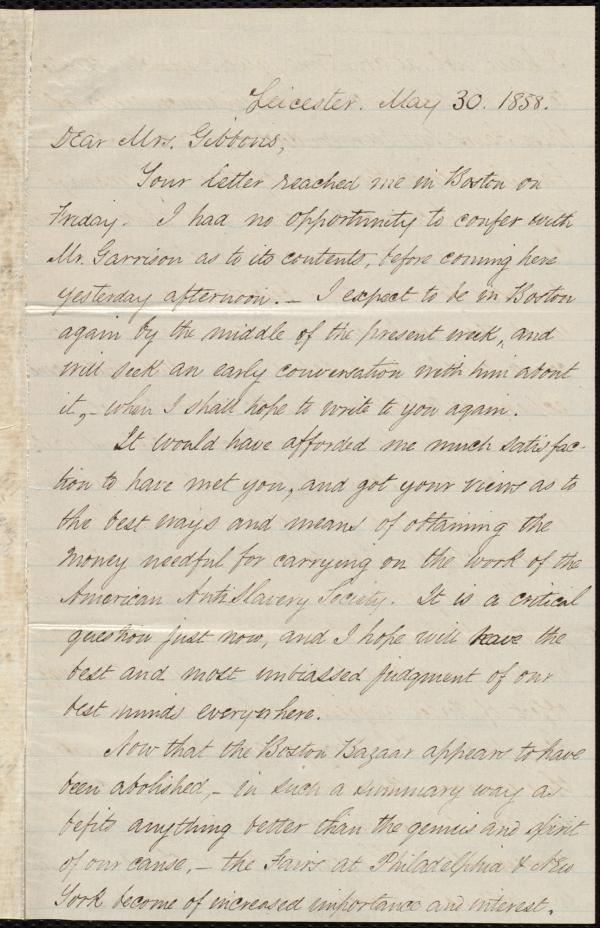 Leicester. May 30. 1858.
Dear Mrs. Gibbons,
Your letter reached me in Boston on
Friday. I had no opportunity to confer with
Mr. Garrison as to its contents, before coming here
yesterday afternoon. – I expect to be in Boston
again by the middle of the present week, and
will seek an early conversation with him about
it, – when I shall hope to write to you again.
It would have afforded me much satisfac-
tion to have met you, and got your views as to
the best ways and means of obtaining the
money needful for carrying on the work of the
American AntiSlavery Society. It is a critical
question just now, and I hope will have the
best and most unbiassed judgment of our
best minds everywhere.
Now that the Boston Bazaar appears to have
been abolished, – in such a summary way as
befits anything better than the genius and spirit
of our cause, – the Fairs at Philadelphia & New
York become of increased importance and interest.